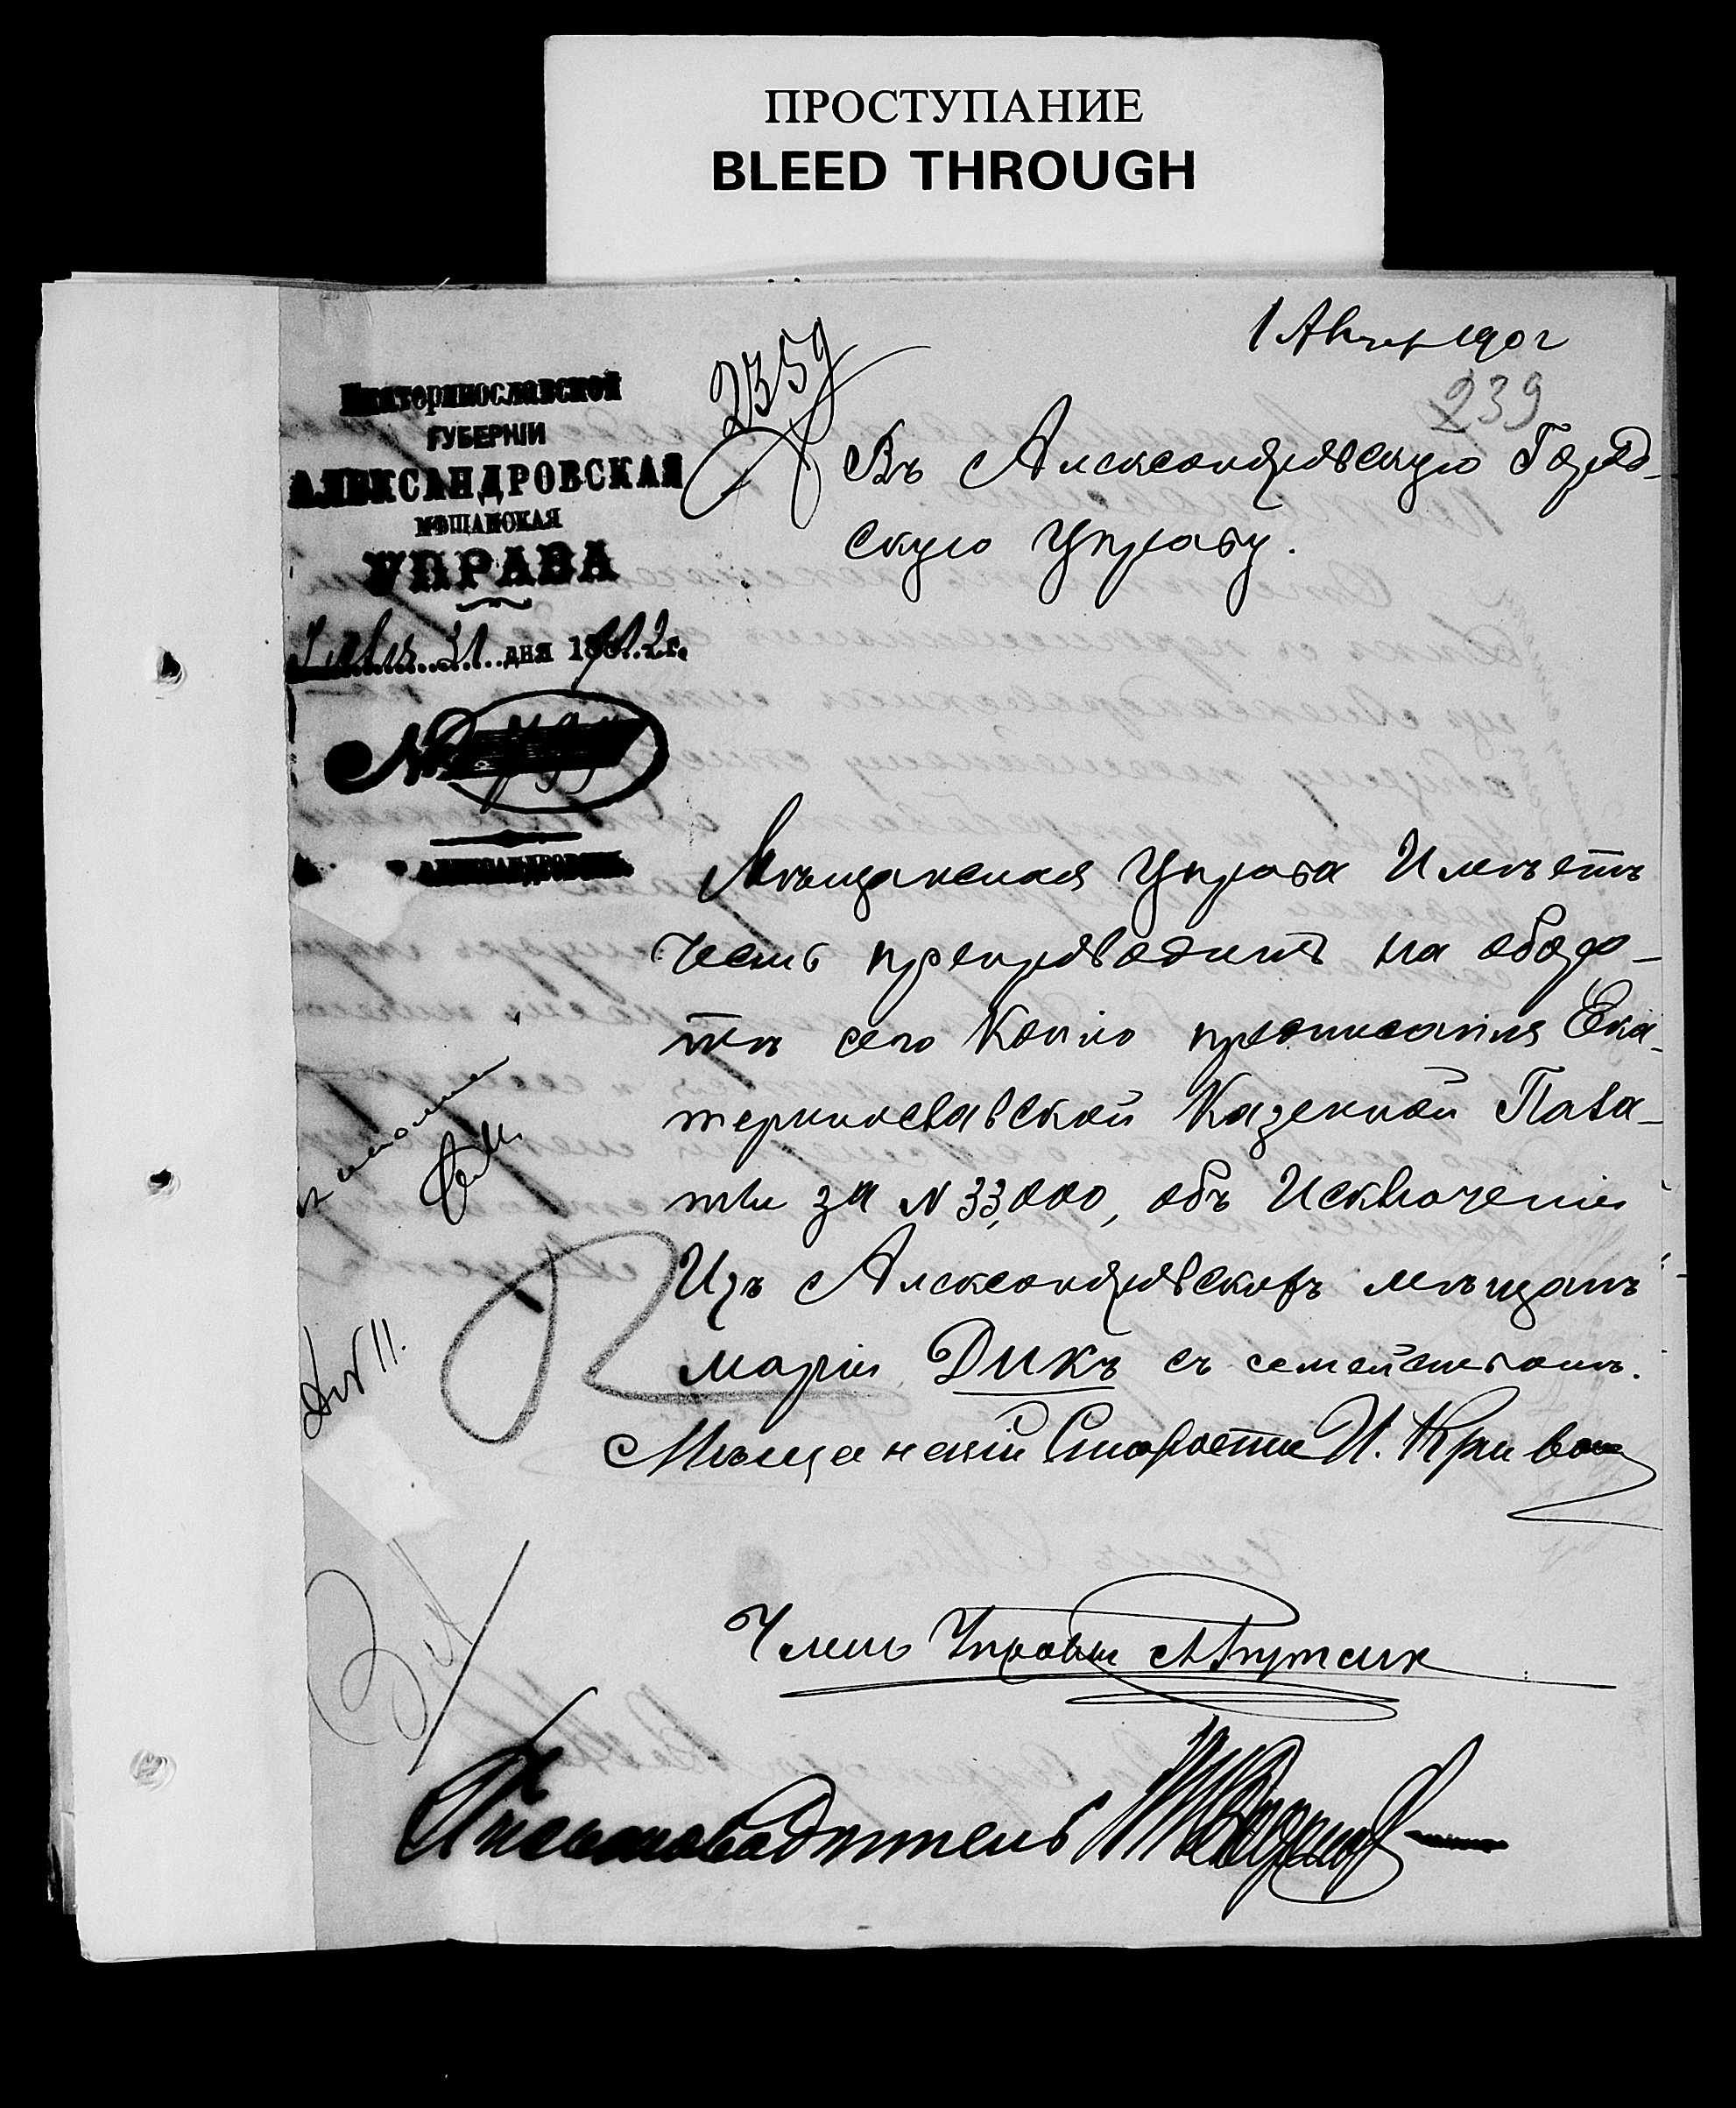 ПРОСТУПАНИЕ
BLEED THROUGH
1902
2359
239
Екатеринославской
ГУБЕРНІИ
АЛЕКСАНДРОВСКАЯ
МѢЩАНСКАЯ
УПРАВА
31 дня 1902 г.
№
Въ Александровскую Город-
скую Управу.
Мѣщанская Управа Имѣетъ
честь препроводить на оборо-
тѣ сего Копію предписанія Ека-
теринославской Казенной Пала-
ты за № 33,000, объ Исключеніи
Изъ Александровскихъ мѣщанъ
Маріи Дикъ съ семействомъ.
Мѣщанскій Староста И.
Членъ Управы
Письмоводитель